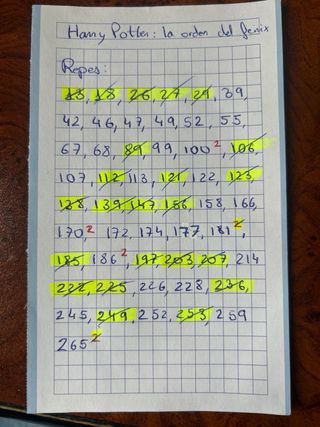 Harry Potter: la orden del fenix
Repes:
13, 18, 26, 27, 29, 39,
42, 46, 47, 49, 52, 55,
67, 68, 89, 99, 100², 106,
107, 112, 113, 121, 122, 123,
138, 139, 147, 156, 158, 166,
170², 172, 174, 177, 181²,
185, 186², 197, 203, 207, 214
222, 225, 226, 228, 236,
245, 249, 252, 253, 259
265²